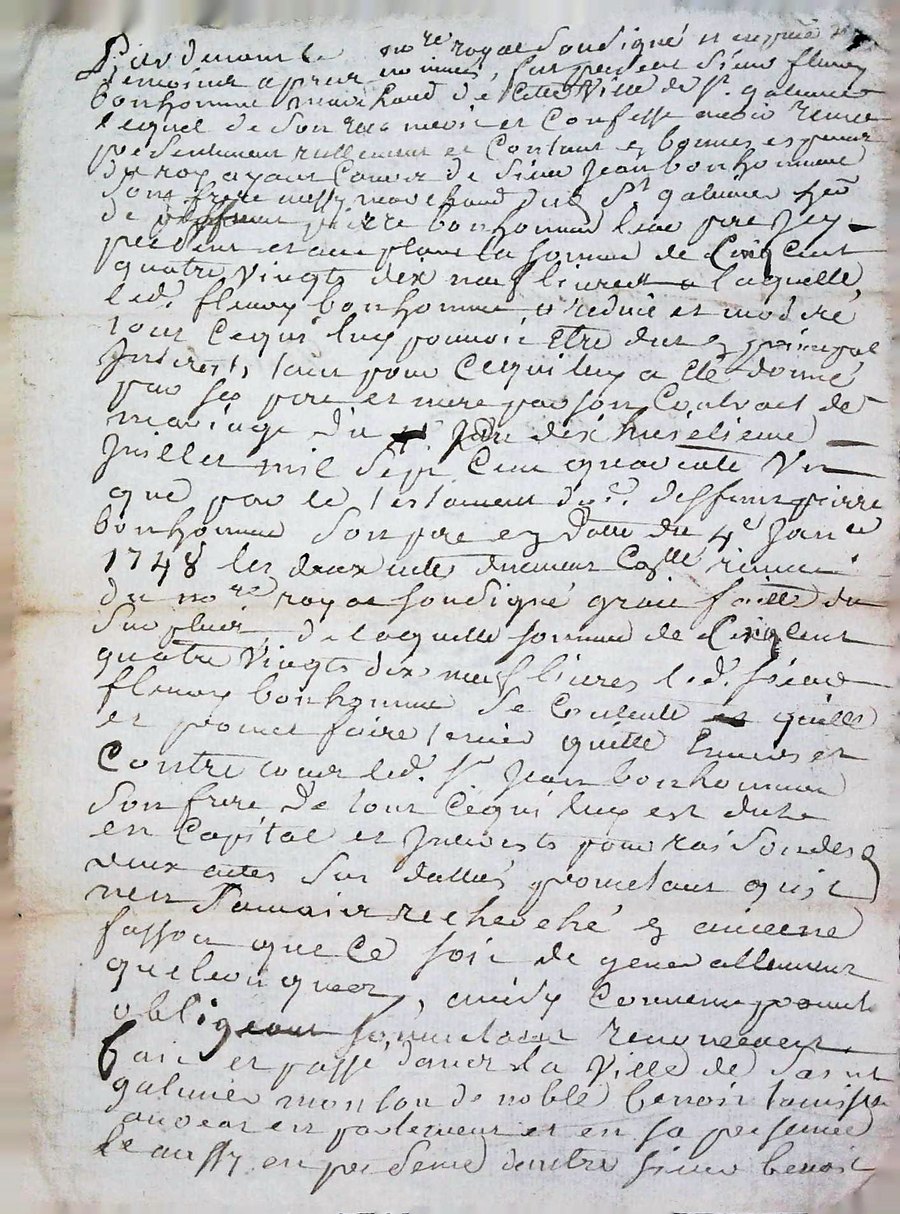 Pardevant le no.re royal Soussigné et en presence des
temoins apres nommés, fut present Sieur fleury
bonhomme marchand de cette Ville de St. galmier
lequel de Son gré a Confessé avoir receu
presentement reellement et Contant en bonnes especes
du roy ayant Cours de Sieur Jean bonhomme
Son frere aussy marchand dud. St galmier
de deffunt pierre bonhomme leur pere Jcy
present et acceptant la Somme de Cinq Cent
quatre Vingts dix neuf livres a laquelle
led. fleury bonhomme a reduit et moderé
tout Cequi luy pouvoit Etre du en principal
Jnterets, tant pour Cequi luy a eté donné
par Ses pere et mere par Son Contract de
mariage du dix huitieme
Juillet mil Sept Cent quarente Un
que par le testament dud. deffunt pierre
bonhomme Son pere en datte du 4e Janer
1748 les deux actes
du no.re royal Soussigné
de laquelle Somme de Cinq Cent
quatre Vingts dix neuf livres led. Sieur
fleury bonhomme Se Contente et quitte
et promet faire tenir quitte Envers et
Contre tous led. Sr Jean bonhomme
Son frere de tout Cequi luy est du
en Capital et Jnterets pour raison des
deux actes Sus dattés prometant quil
nen Sera Jamais recherché en aucune
fasson que Ce soit et generallement
quelconques, ainsy Convenu promis
obligeant Soumetant renonceant
fait et passé dans la Ville de Saint
galmier maison de noble benoit
avocat en parlement et en sa presence
le aussy en presence dautre Sieur benoit